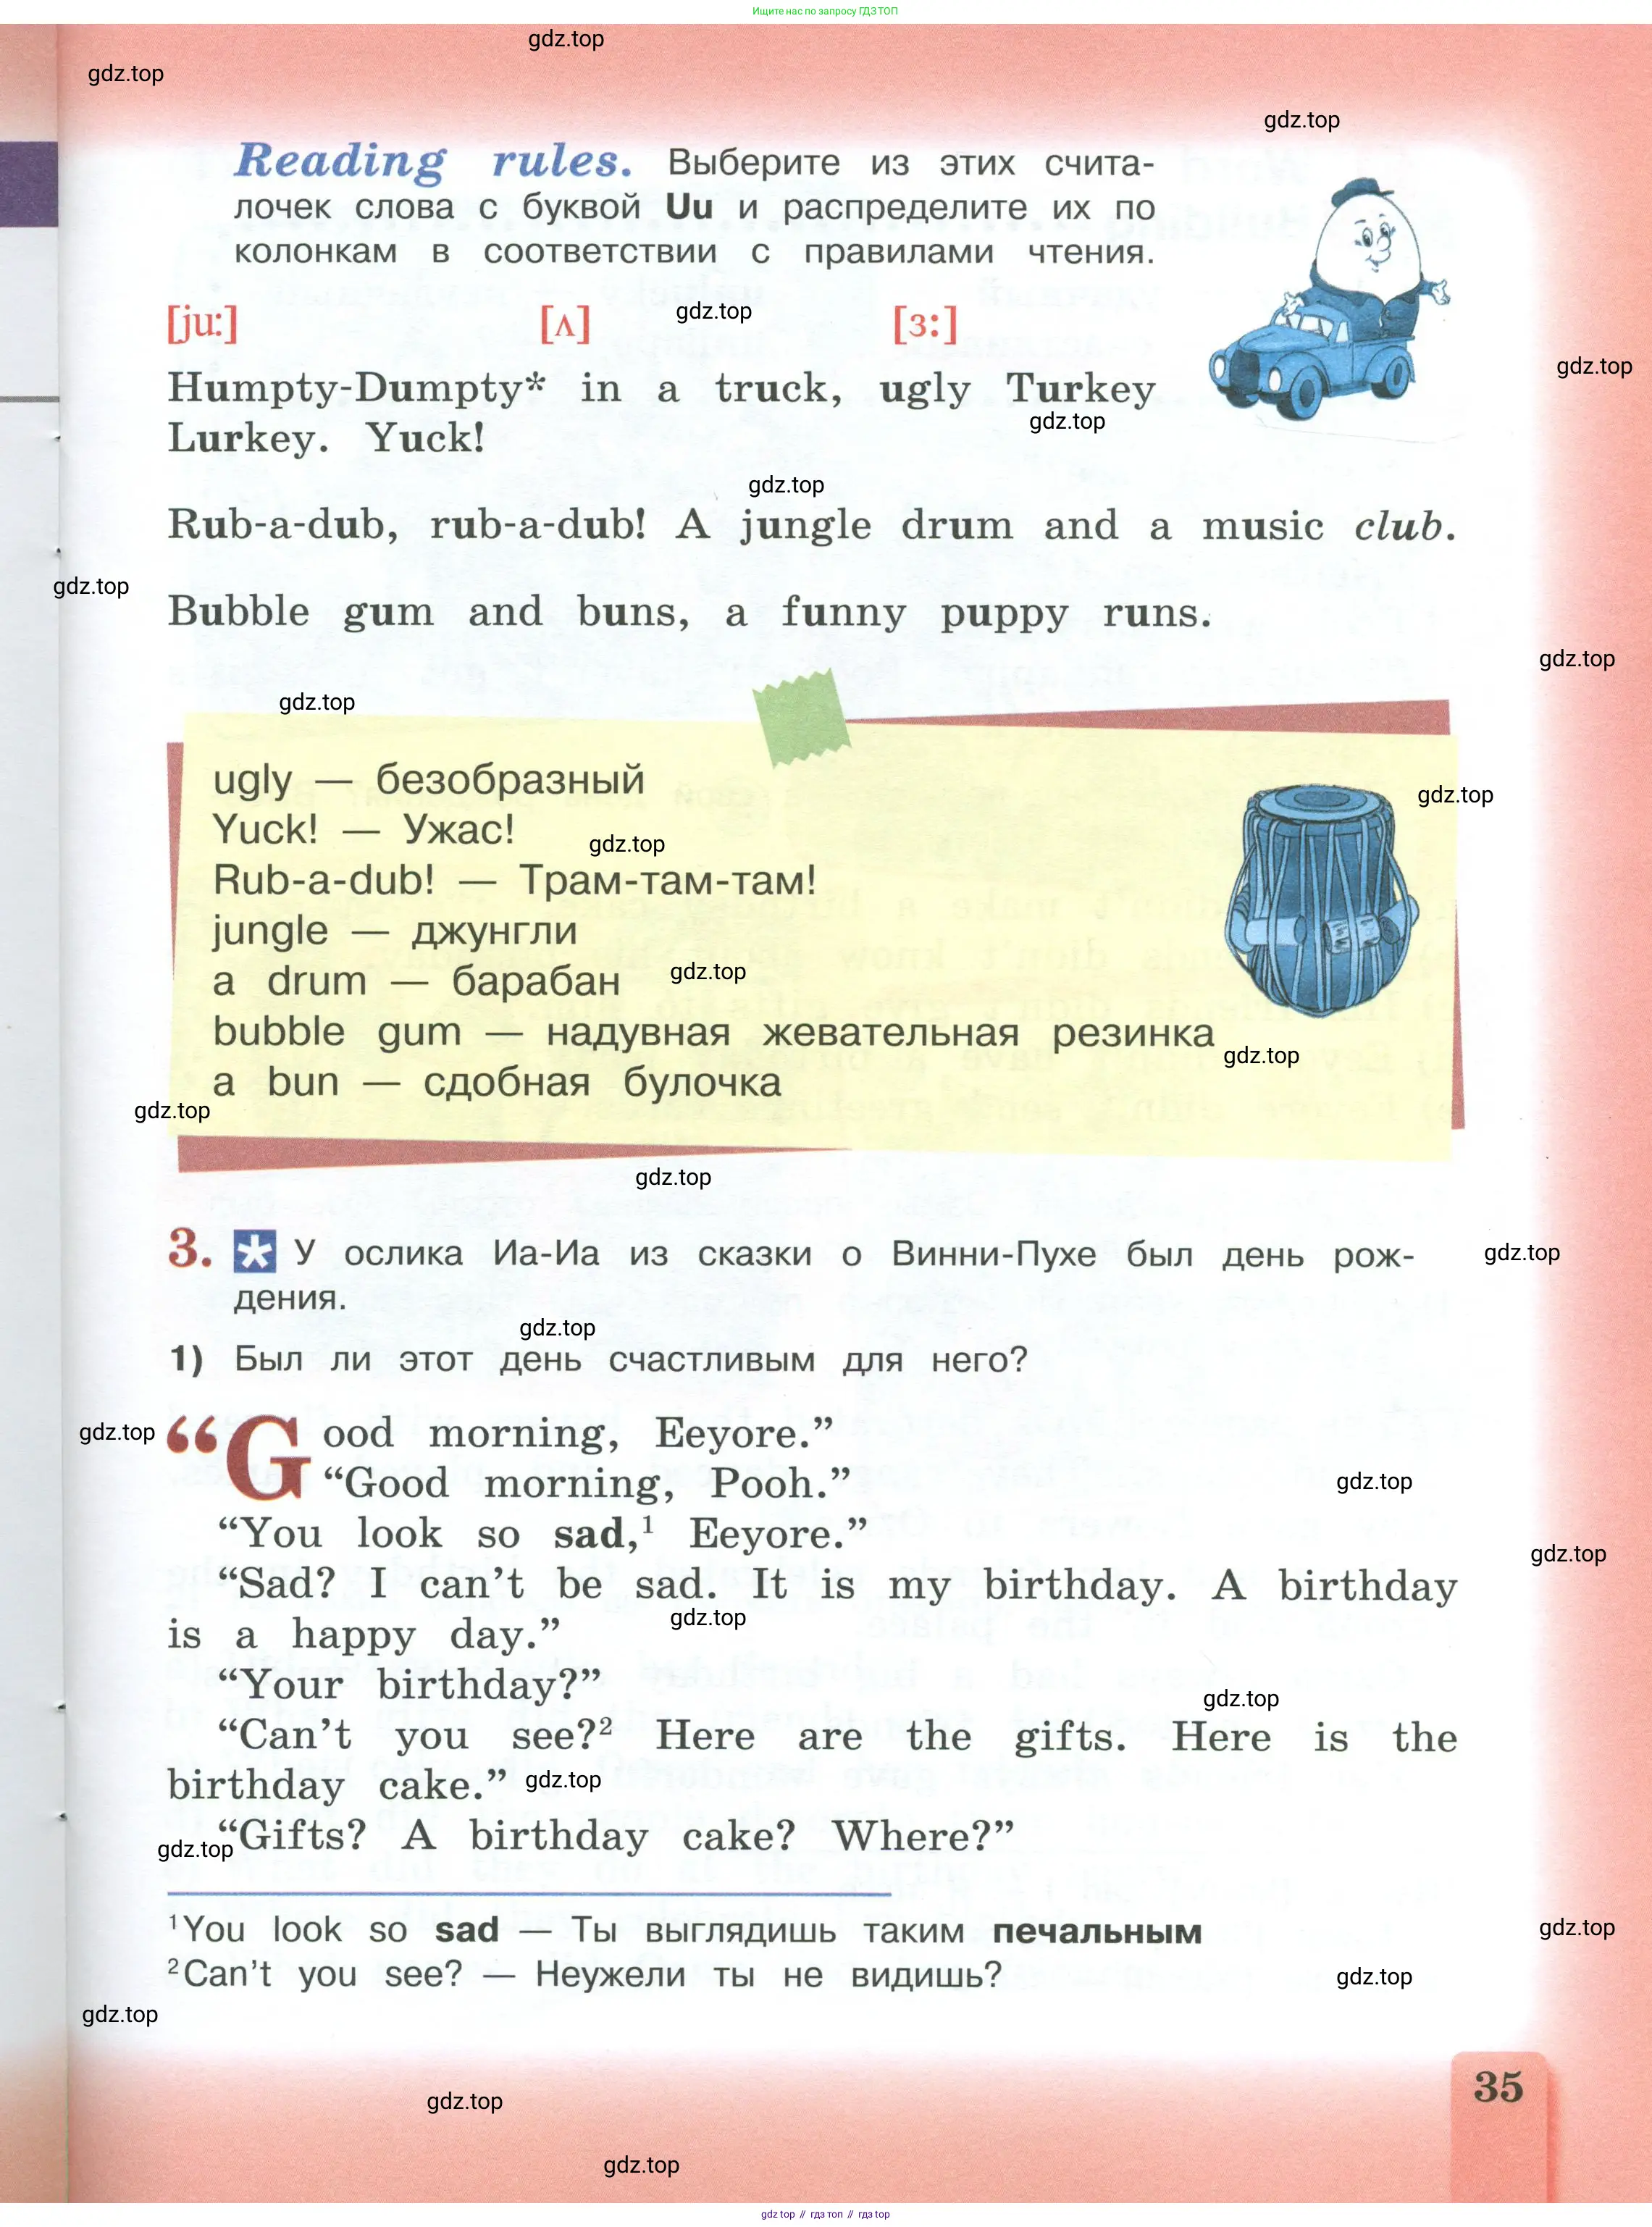 Ищите нас по запросу ГДЗ ТОП
gdz.top
gdz.top
gdz.top
Reading rules. Выберите из этих счита-
лочек слова с буквой Uu и распределите их по
колонкам в соответствии с правилами чтения.
[ju:] [ʌ] [ɜ:]
gdz.top
gdz.top
Humpty-Dumpty* in a truck, ugly Turkey
gdz.top
Lurkey. Yuck!
gdz.top
Rub-a-dub, rub-a-dub! A jungle drum and a music club.
gdz.top
Bubble gum and buns, a funny puppy runs.
gdz.top
gdz.top
ugly — безобразный
gdz.top
Yuck! — Ужас!
gdz.top
Rub-a-dub! — Трам-там-там!
jungle — джунгли
a drum — барабан
gdz.top
bubble gum — надувная жевательная резинка
gdz.top
a bun — сдобная булочка
gdz.top
gdz.top
3. * У ослика Иа-Иа из сказки о Винни-Пухе был день рож-
gdz.top
дения.
gdz.top
1) Был ли этот день счастливым для него?
gdz.top
“Good morning, Eeyore.”
“Good morning, Pooh.”
gdz.top
“You look so sad,¹ Eeyore.”
gdz.top
“Sad? I can’t be sad. It is my birthday. A birthday
gdz.top
is a happy day.”
“Your birthday?”
gdz.top
“Can’t you see?² Here are the gifts. Here is the
birthday cake.”
gdz.top
“Gifts? A birthday cake? Where?”
gdz.top
¹You look so sad — Ты выглядишь таким печальным
gdz.top
²Can’t you see? — Неужели ты не видишь?
gdz.top
gdz.top
35
gdz.top
gdz.top
gdz top // гдз топ // гдз top